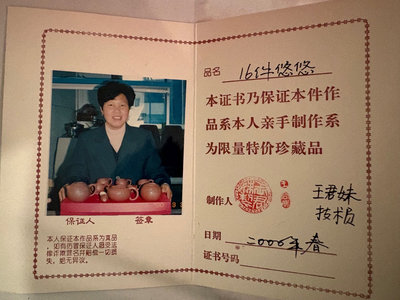 保证人 签章
本人保证本作品系为真品
，如有仿冒保证人愿受法
律诉讼并赔偿一切损
失，绝无异议。
品名 16件悠悠
本证书乃保证本件作
品系本人亲手制作系
为限量特价珍藏品
制作人 王君妹
技术员
日期 二000年春
证书号码